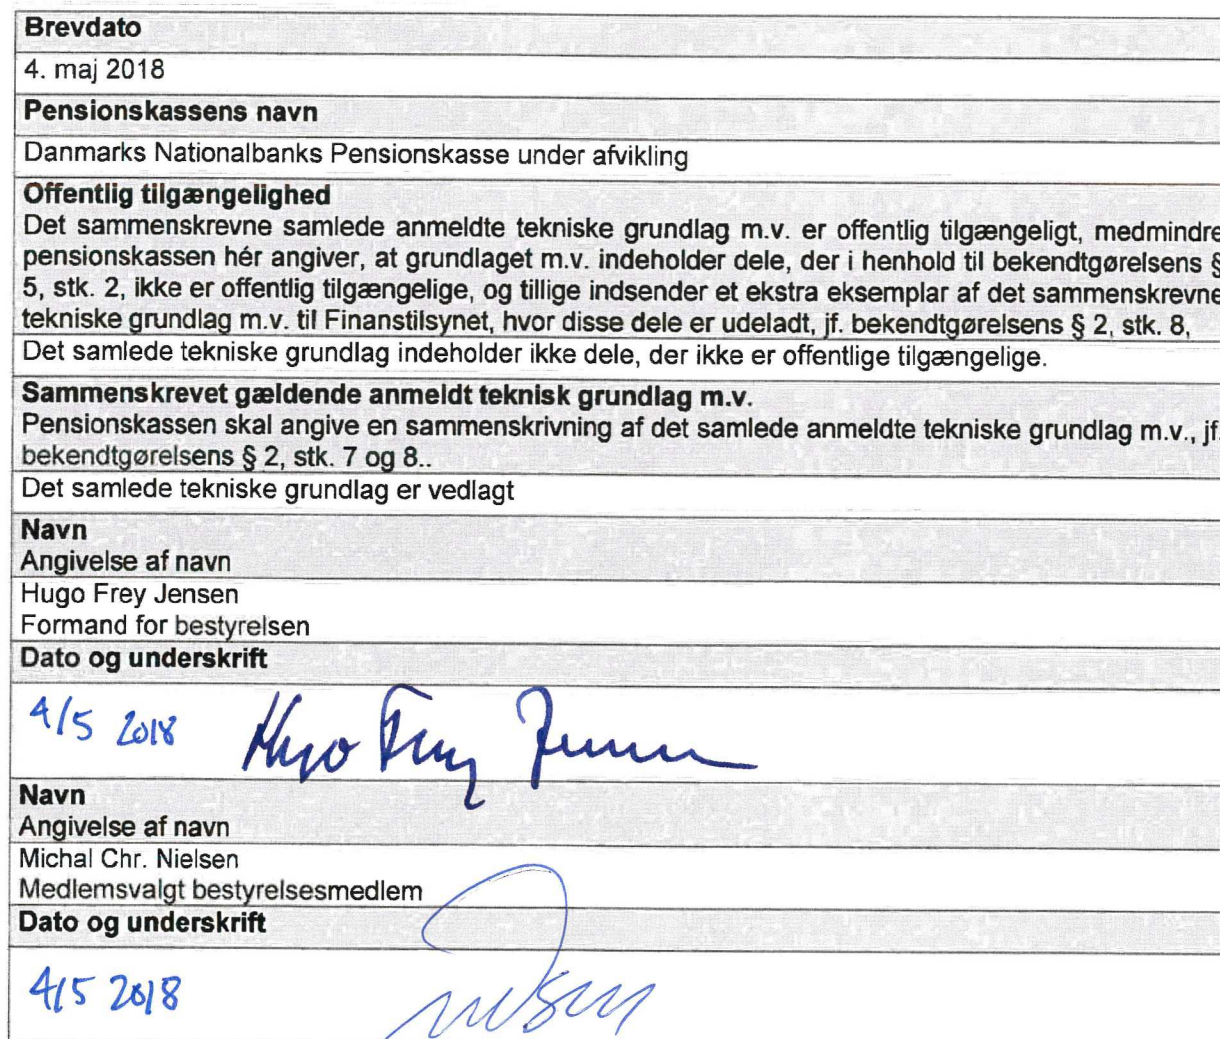 Brevdato
4. maj 2018
Pensionskassens navn
Danmarks Nationalbanks Pensionskasse under afvikling
Offentlig tilgængelighed
Det sammenskrevne samlede anmeldte tekniske grundlag m.v. er offentlig tilgængeligt, medmindre
pensionskassen hér angiver, at grundlaget m.v. indeholder dele, der i henhold til bekendtgørelsens §
5, stk. 2, ikke er offentlig tilgængelige, og tillige indsender et ekstra eksemplar af det sammenskrevne
tekniske grundlag m.v. til Finanstilsynet, hvor disse dele er udeladt, jf. bekendtgørelsens § 2, stk. 8,
Det samlede tekniske grundlag indeholder ikke dele, der ikke er offentlige tilgængelige.
Sammenskrevet gældende anmeldt teknisk grundlag m.v.
Pensionskassen skal angive en sammenskrivning af det samlede anmeldte tekniske grundlag m.v., jf.
bekendtgørelsens § 2, stk. 7 og 8..
Det samlede tekniske grundlag er vedlagt
Navn
Angivelse af navn
Hugo Frey Jensen
Formand for bestyrelsen
Dato og underskrift
4/5 2018 Hugo Frey Jensen
Navn
Angivelse af navn
Michal Chr. Nielsen
Medlemsvalgt bestyrelsesmedlem
Dato og underskrift
4/5 2018